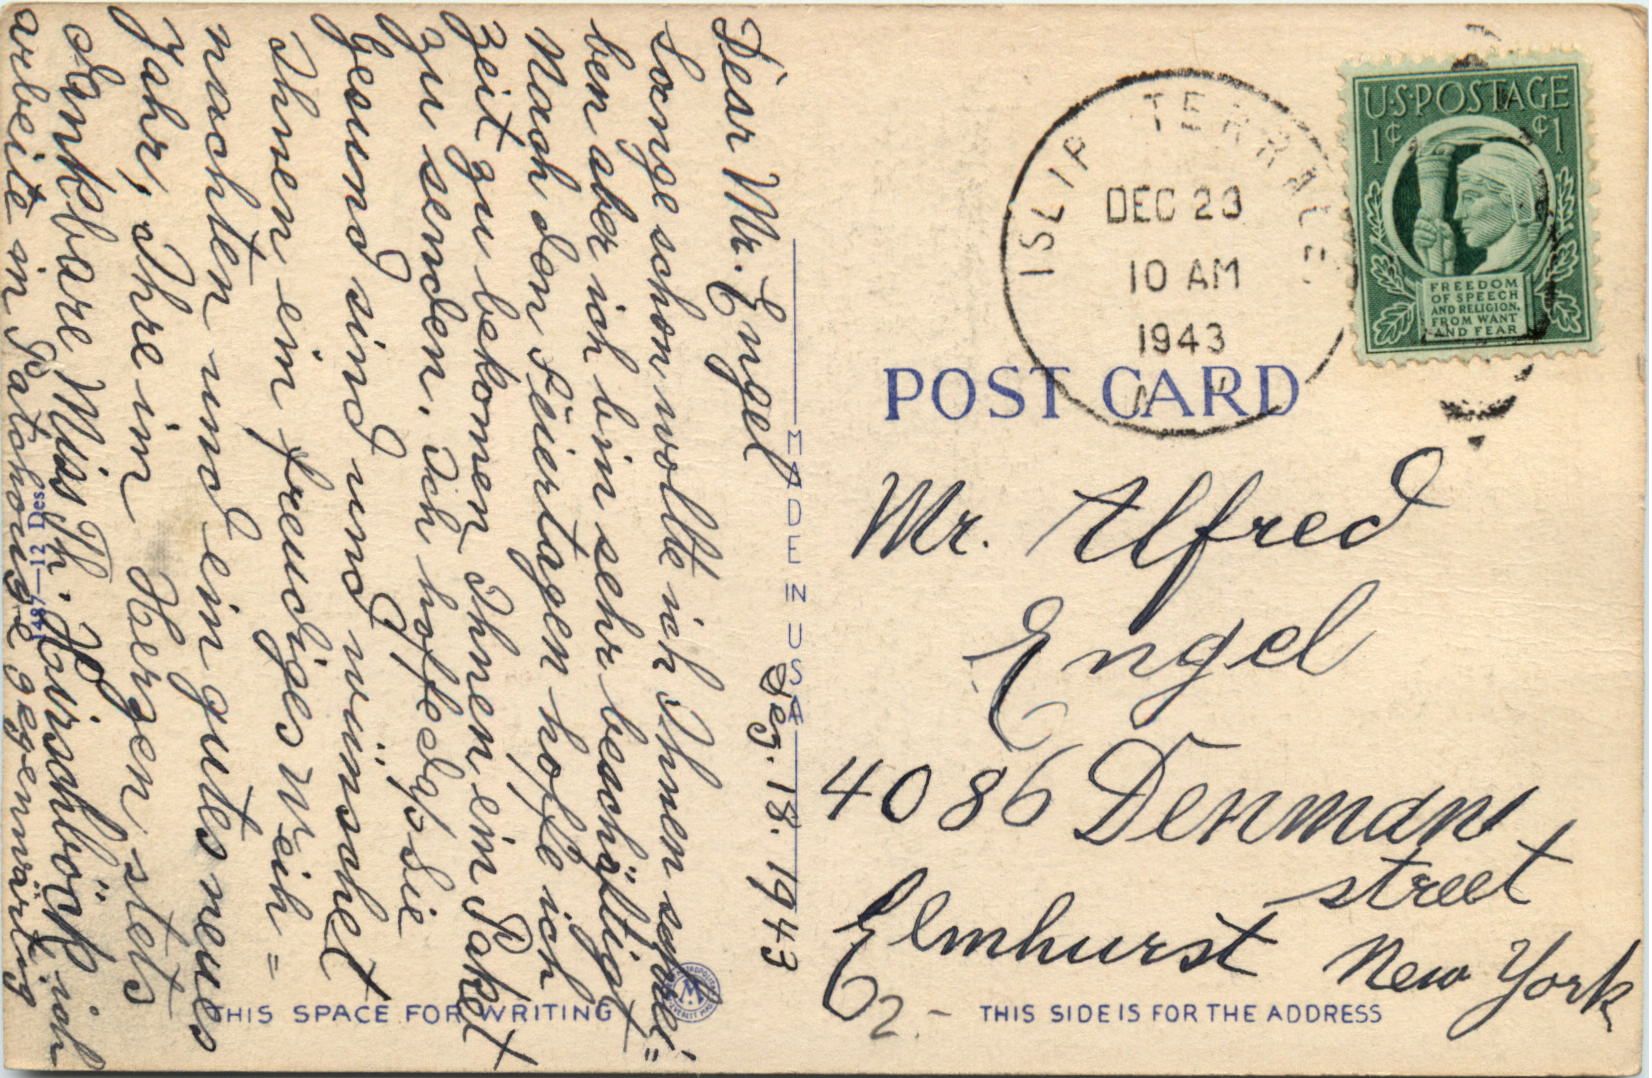 Dez. 18. 1943
Dear Mr. Engel
Lange schon wollte ich Ihnen schrei=
ben aber ich bin sehr beschäftigt
Nach den Feiertagen hoffe ich
Zeit zu bekomen Ihnen ein Paket
zu senden. Ich hoffe daß Sie
Gesund sind und wünschet
Ihnen ein freudiges Weih=
nachten und ein gutes neues
Jahr, Ihre im Herzen stets
dankbare Miss Th. Hirschböck ich
arbeite in Patchouge gegenwärtig
MADE IN USA
THIS SPACE FOR WRITING
ISLIP TERRACE
DEC 23
10 AM
1943
N.Y.
U·S·POSTAGE
1¢ ¢1
FREEDOM
OF SPEECH
AND RELIGION,
FROM WANT
AND FEAR
POST CARD
Mr. Alfred
Engel
4086 Denman
street
Elmhurst New York
62.-
THIS SIDE IS FOR THE ADDRESS